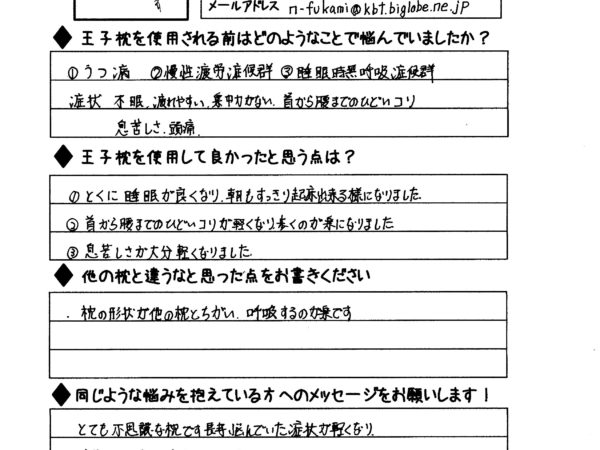 す
メールアドレス n-fukami@kbt.biglobe.ne.jp
◆ 王子枕を使用される前はどのようなことで悩んでいましたか？
①うつ病 ②慢性疲労症候群 ③睡眠時無呼吸症候群
症状 不眠、疲れやすい、集中力がない、首から腰までのひどいコリ
息苦しさ、頭痛、
◆ 王子枕を使用して良かったと思う点は？
①とくに睡眠が良くなり、朝もすっきり起床出来る様になりました
② 首から腰までのひどいコリが軽くなり歩くのが楽になりました
③ 息苦しさが大分軽くなりました
◆ 他の枕と違うなと思った点をお書きください
・枕の形状が他の枕とちがい、呼吸するのが楽です
◆ 同じような悩みを抱えている方へのメッセージをお願いします！
とても不思議な枕です長年悩んでいた症状が軽くなり、